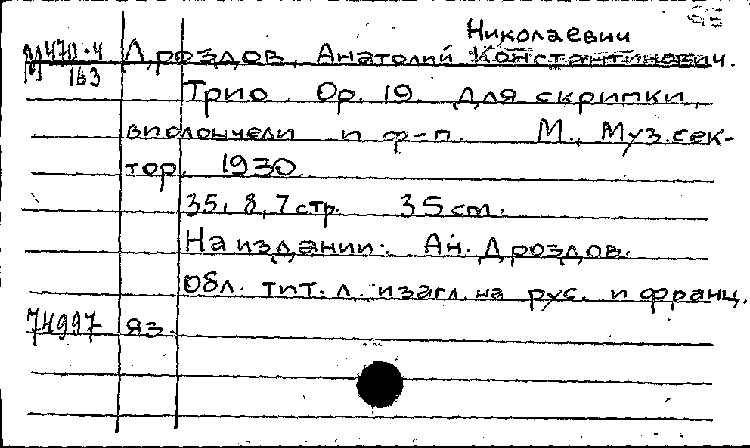 Николаевич
М470.4 Дроздов, Анатолий Константинович.
163
Трио Op. 19. Для скрипки,
виолончели и ф-п. М., Муз.сек-
тор, 1930
35, 8, 7 стр. 35 cm.
На издании: Ан. Дроздов.
Обл. тит. л. и загл. на рус. и франц.
74997 яз.